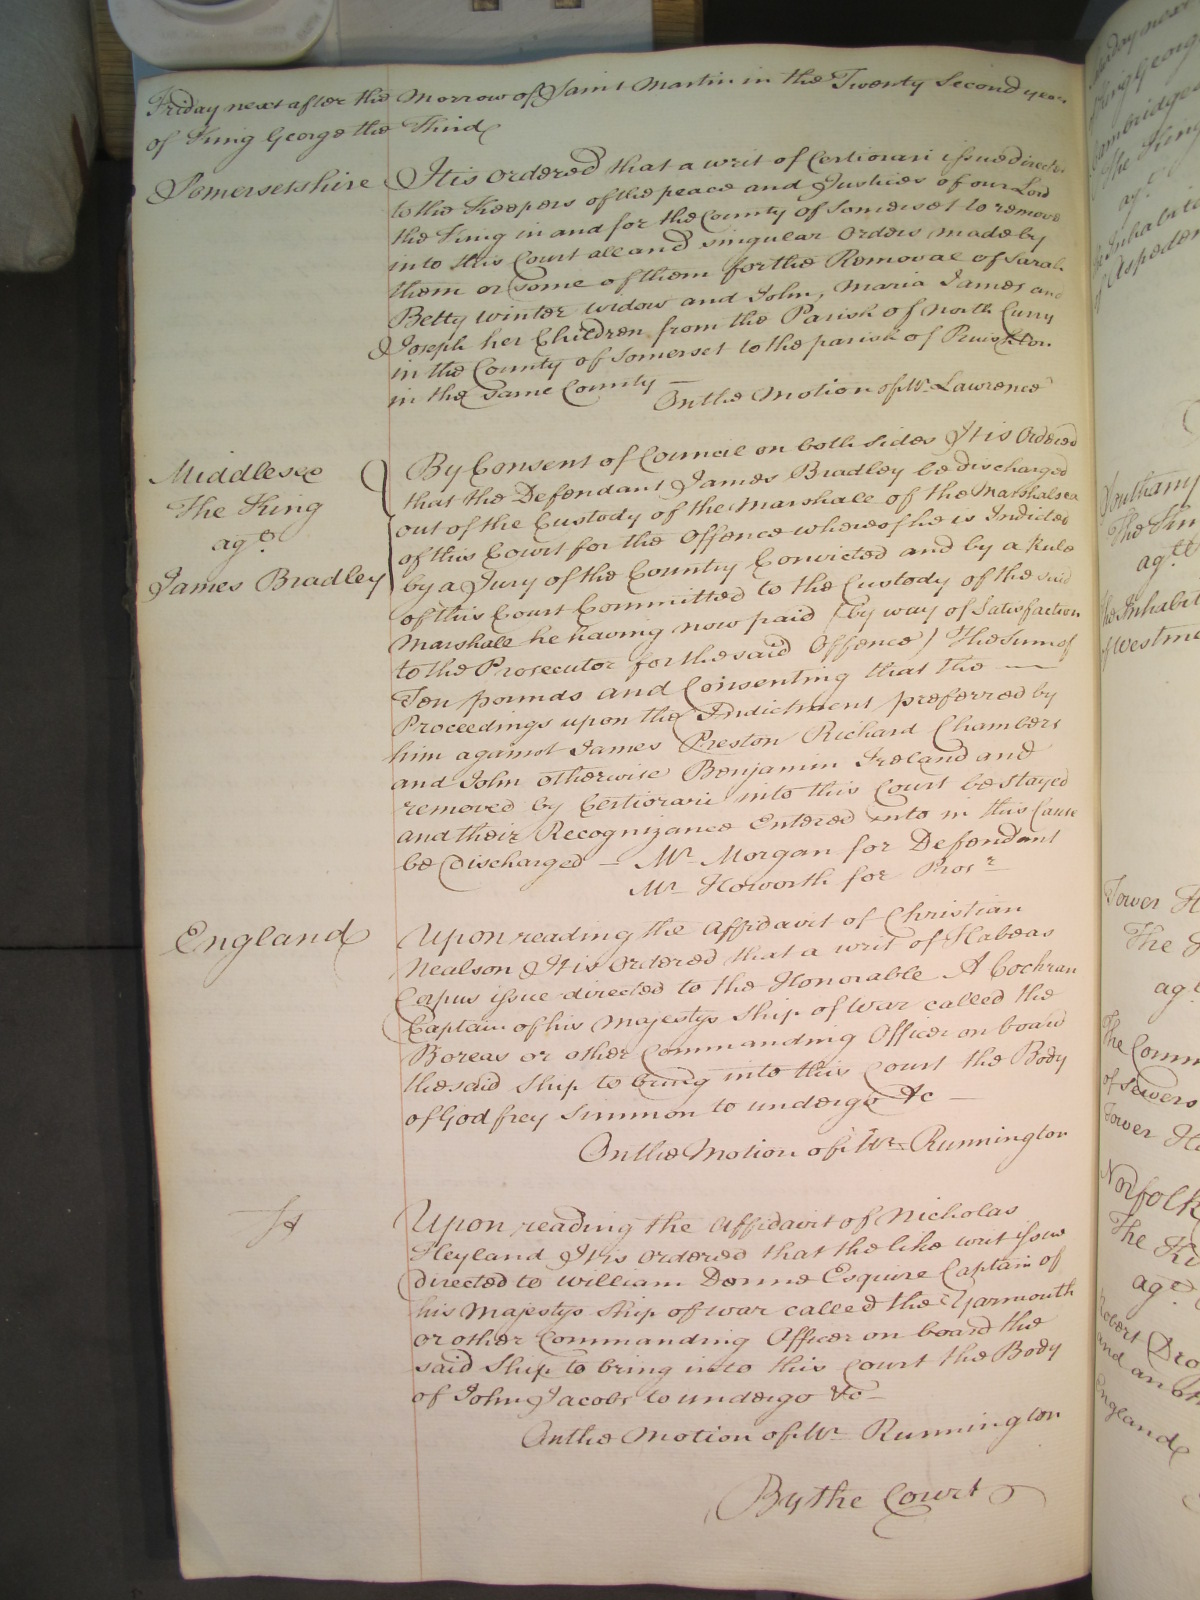 Friday next after the Morrow of Saint Martin in the Twenty Second year
of King George the Third
Somersetshire
It is ordered that a writ of Certiorari issue directed
to the Keepers of the peace and Justices of our Lord
the King in and for the County of Somerset to remove
into this Court all and singular Orders made by
them or some of them for the Removal of Sarah
Betty Winter widow and John, Maria James and
Joseph her Children from the Parish of North Curry
in the County of Somerset to the parish of Ruishton
in the same County —
On the Motion of Mr. Lawrence
Middlesex
The King
agt.
James Bradley
By Consent of Council on both sides It is Ordered
that the Defendant James Bradley be discharged
out of the Custody of the Marshall of the Marshalsea
of this Court for the Offence whereof he is Indicted
by a Jury of the Country Convicted and by a Rule
of this Court Committed to the Custody of the said
Marshall he having now paid (by way of Satisfaction
to the Prosecutor for the said Offence) The Sum of
Ten pounds and Consenting that the —
Proceedings upon the Indictment preferred by
him against James Preston Richard Chambers
and John otherwise Benjamin Ireland and
removed by Certiorari into this Court be stayed
and their Recognizance Entered into in this Cause
be discharged — Mr. Morgan for Defendant
Mr. Howorth for Prosr.
England
Upon reading the Affidavit of Christian
Nealson It is Ordered that a writ of Habeas
Corpus issue directed to the Honorable A Cochran
Captain of his Majestys Ship of War called the
Boreas or other Commanding Officer on board
the said Ship to bring into this Court the Body
of Godfrey Simmon to undergo &c —
On the Motion of Mr. Runnington
Upon reading the Affidavit of Nicholas
Heyland It is ordered that the like writ issue
directed to William Donne Esquire Captain of
his Majestys Ship of war called the Yarmouth
or other Commanding Officer on board the
said Ship to bring into this Court the Body
of John Jacobs to undergo &c —
On the Motion of Mr. Runnington
By the Court
The King
agt.
Southamp
agtt.
the Inhabit
of Westme
Tower H
The
agt
The Comm
of Sewers
Tower Ha
Norfolk
The Ki
agt.
and anoth
England